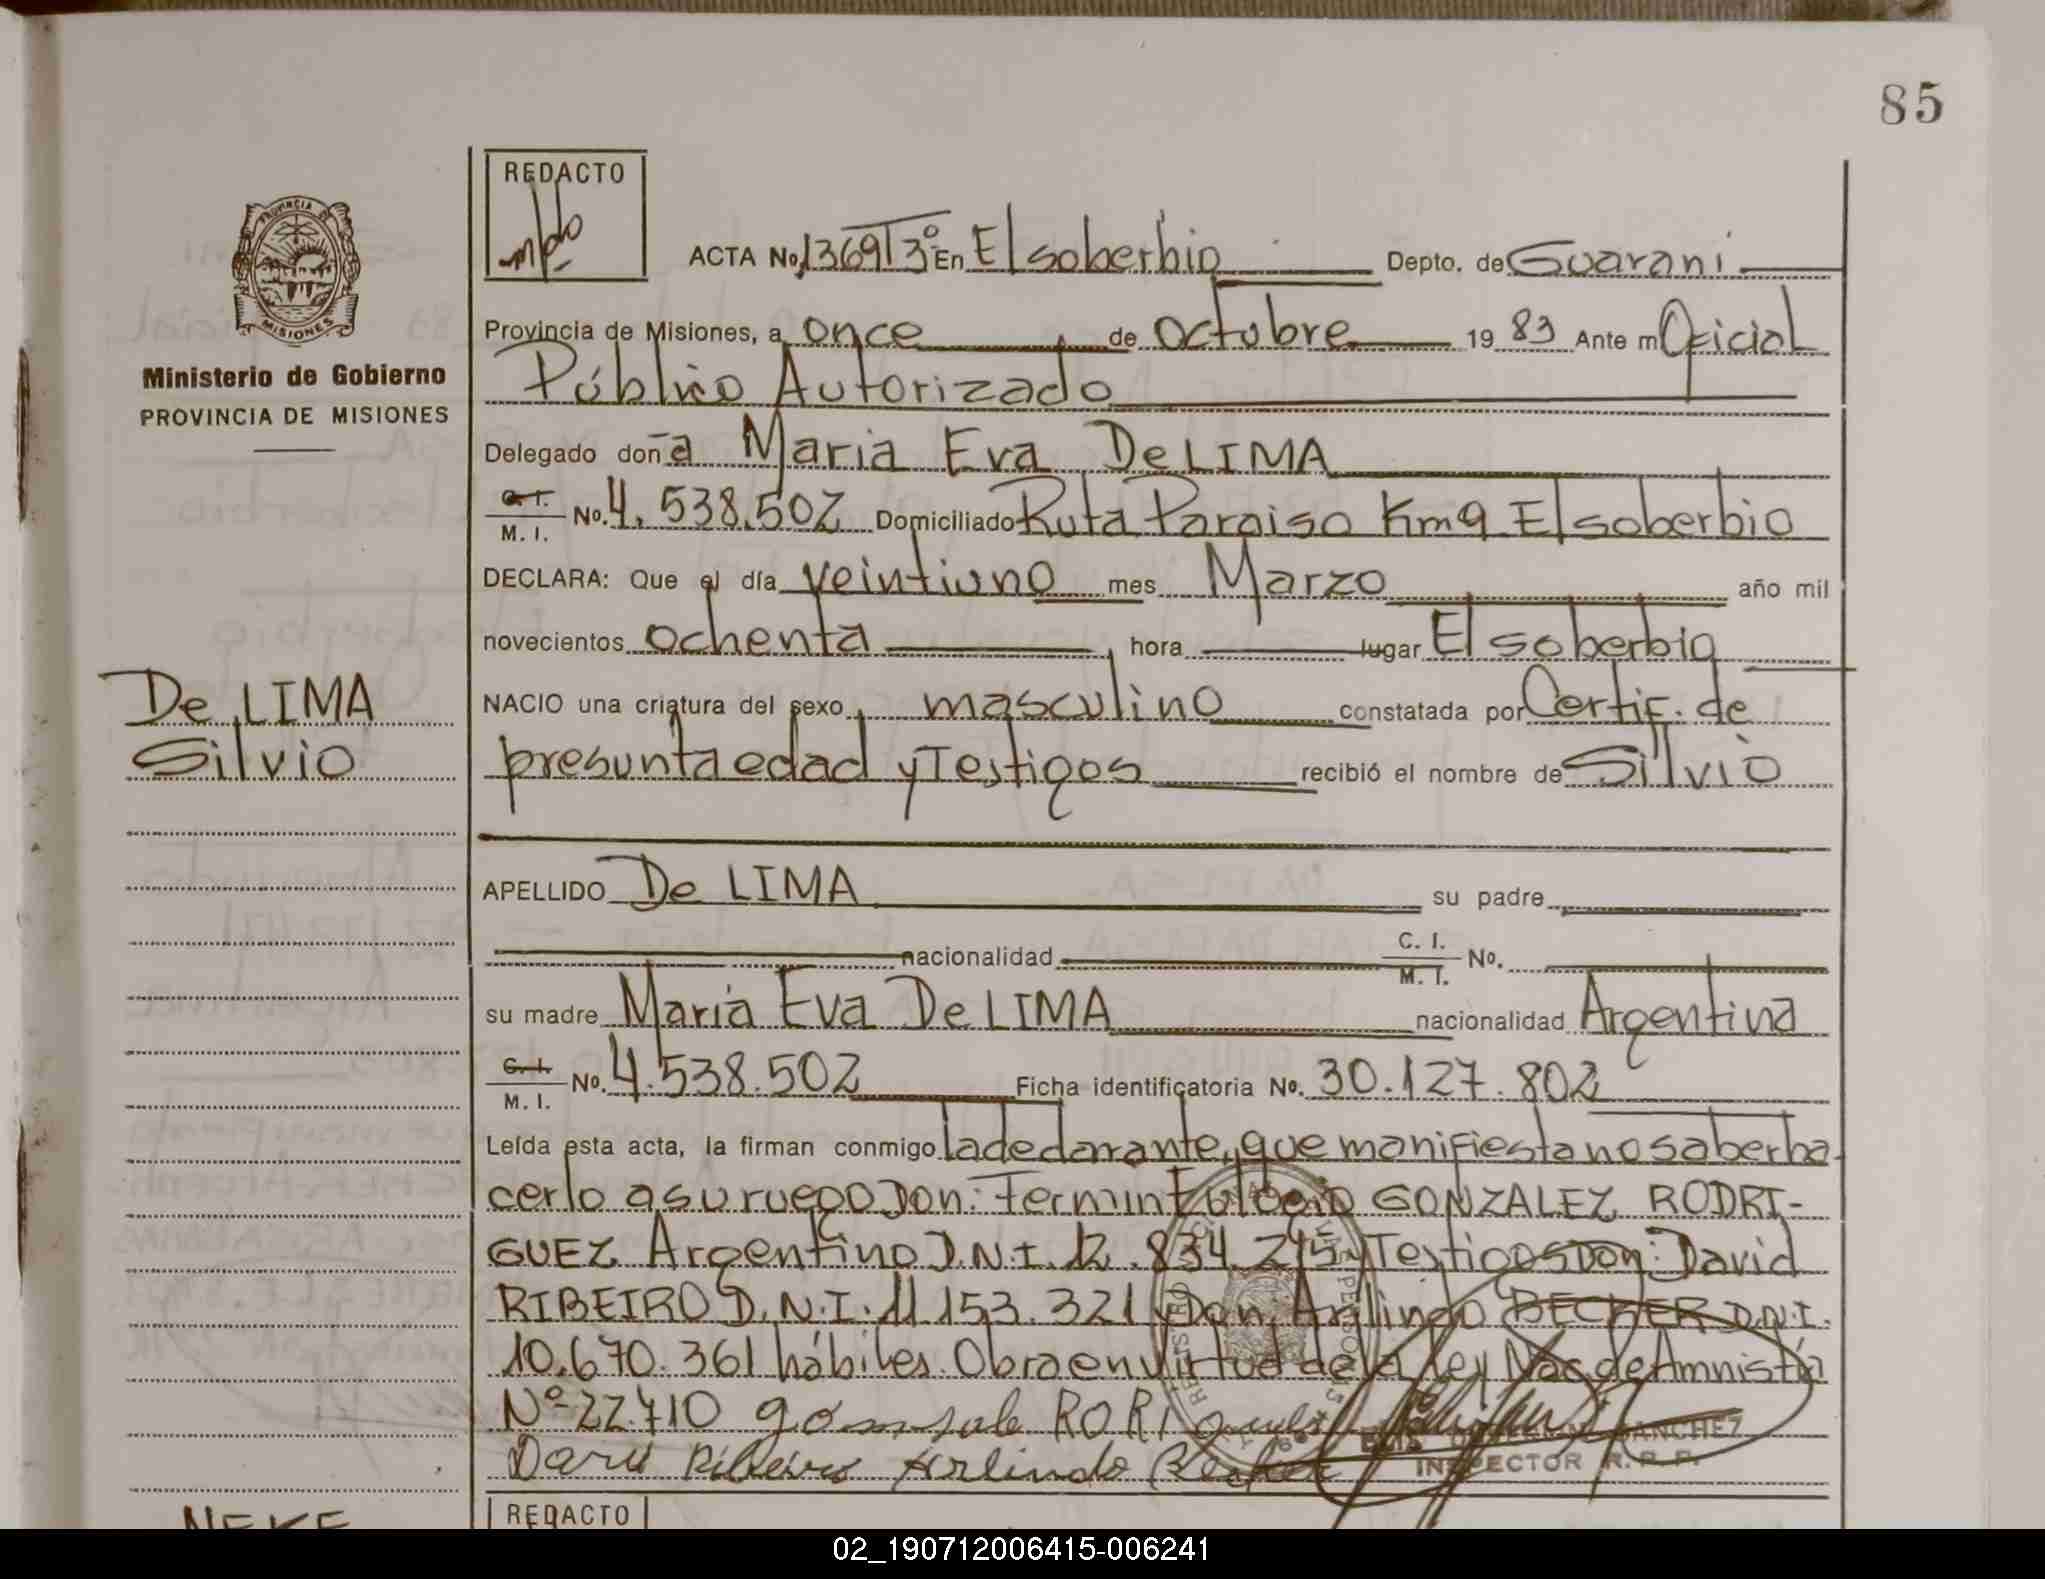 85
REDACTO
ACTA No. 1369 T 3º En El soberbio Depto. de Guarani
Provincia de Misiones, a once de octubre 19 83 Ante mi Oficial
Público Autorizado
PROVINCIA DE
MISIONES
Ministerio de Gobierno
PROVINCIA DE MISIONES
Delegado doña Maria Eva De LIMA
C. I.
M. I. No. 4.538.502 Domiciliado Ruta Paraiso Km 9 El soberbio
DECLARA: Que el día veintiuno mes Marzo año mil
novecientos ochenta hora lugar El soberbio
De LIMA
Silvio
NACIO una criatura del sexo masculino constatada por Certif. de
presunta edad y Testigos recibió el nombre de Silvio
APELLIDO De LIMA su padre
nacionalidad C. I. M. I. No.
su madre Maria Eva De LIMA nacionalidad Argentina
C. I.
M. I. No. 4.538.502 Ficha identificatoria No. 30.127.802
Leída esta acta, la firman conmigo la declarante, que manifiesta no saber ha-
cerlo a su ruego Don: Fermin GONZALEZ RODRI-
GUEZ Argentino D.N.I. 12.834.245 y Testigos Don: David
RIBEIRO D.N.I. 11 153.321 y Don Arlindo BECHER D.N.I.
10.670.361 hábiles. Obra en virtud de la Ley Nac de Amnistía
Nº 22.410
Ribeiro Arlindo Becher
SANCHEZ
INSPECTOR R. P. P.
NEKE
REDACTO
02_190712006415-006241